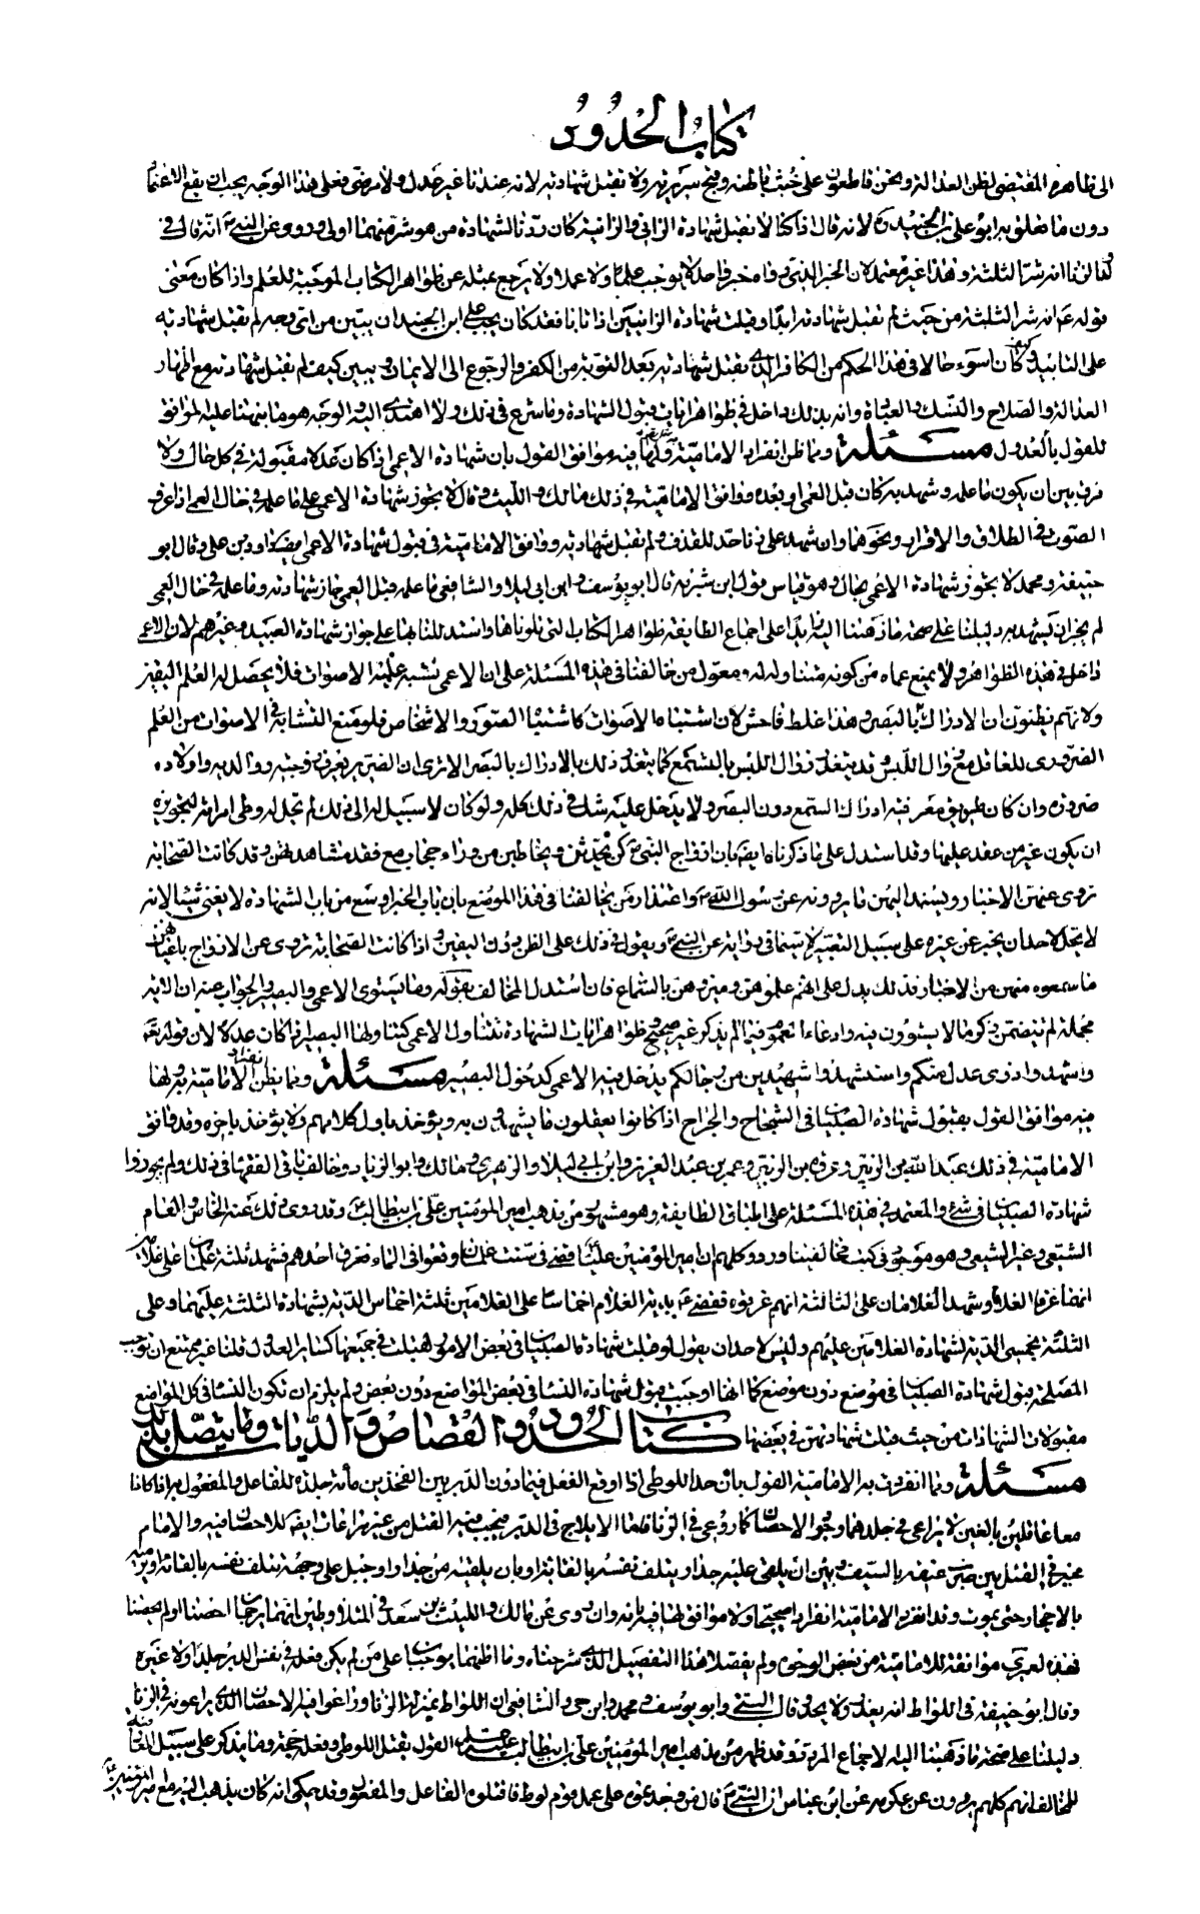 كتاب الحدود
الى ظاهره المقتضى لظن العدالة ونحن قاطعون على خبث باطنه وقبح سريرته ولا تقبل شهادته لانه عندنا غير عدل ولا مرضى فعلى هذا الوجه يجب ان يقع الاعتماد
دون ما تعلق به ابو على بن الجنيد ره لانه قال اذا كنا لا نقبل شهادة الزاني والزانية كان ردنا لشهادة من هو شر منهما اولى وروو عن النبي ص انه قال في
ولد الزنا انه شر الثلثة وهذا غير معتمد لان الخبر الذي رواه خبر واحد لا يوجب علما ولا عملا ولا يرجع بمثله عن ظواهر الكتاب الموجبة للعلم واذا كان معنى
قوله ع انه شر الثلثة من حيث لم تقبل شهادته ابدا وقبلت شهادة الزانيين اذا تابا فقد كان يجب على ابن الجنيد ان يبين من اى وجه لم تقبل شهادته
على التابيد وكيف كان اسوء حالا في هذا الحكم من الكافر الذي تقبل شهادته بعد التوبة من الكفر والرجوع الى الايمان ويبين كيف لم تقبل شهادته مع اظهار
العدالة والصلاح والنسك والعبادة وانه بذلك داخل في ظواهر ايات قبول الشهادة وما شرع في ذلك ولا اهتدى اليه والوجه هو ما نبهنا عليه الموافق
للقول بالعدول مسئلة ومما ظن انفراد الامامية به ولها فيه موافق القول بان شهادة الاعمى اذا كان عدلا مقبولة في كل حال ولا
فرق بين ان يكون ما علمه وشهد به كان قبل العمى او بعده ووافق الامامية في ذلك مالك والليث وقال لا تجوز شهادة الاعمى على ما علمه في حال العمى اذا عرف
الصوت في الطلاق والاقرار ونحوهما وان شهد على زنا حد للقذف ولم تقبل شهادته ووافق الامامية في قبول شهادة الاعمى ايضا داود بن على وقال ابو
حنيفة ومحمد لا تجوز شهادة الاعمى بحال وهو قياس قول ابن شبرمة قال ابو يوسف وابن ابى ليلى والشافعى ما علمه قبل العمى جاز شهادته وما علمه في حال العمى
لم يجز ان يشهد به دليلنا على صحة ما ذهبنا اليه زايدا على اجماع الطايفة ظواهر الكتاب التى تلوناها واستدللنا بها على جواز شهادة العبيد وغيرهم لان الاعمى
داخل في هذه الظواهر ولا يمنع عماه من كونه متناولا له ومعول من خالفنا في هذه المسئلة على ان الاعمى تشتبه عليه الاصوات فلا يحصل له العلم اليقين
ولانهم يظنون ان الادراك بالبصر وهذا غلط فاحش لان اشتباه الاصوات كاشتباه الصور والاشخاص فلو منع التشابه في الاصوات من العلم
الضرورى للعاقل مع زوال اللبس قد يتعلق زوال اللبس بالسمع كما يتعلق ذلك بالادراك بالبصر الا ترى ان الضرير يعرف زوجته ووالديه واولاده
ضرورة وان كان طريق معرفته ادراك السمع دون البصر ولا يدخل عليه شك في ذلك كله ولو كان لا سبيل له الى ذلك لم تحل له وطى امراته لتجويزه
ان يكون غير من عقد عليها وقد استدل على ما ذكرناه ايضا بان ازواج النبي ص كن يحدثن ويخاطبن من وراء حجاب مع فقد مشاهدتهن وقد كانت الصحابة
تروى عنهن الاخبار ويسند اليهن ما يروونه عن رسول الله ص واعتذار من يخالفنا في هذا الموضع بان باب الخبر اوسع من باب الشهادة لا يغنى شيئا لانه
لا يحل لاحد ان يخبر عن غيره على سبيل التعيين لا سيما في رواية عن النبي ص ويعول في ذلك على الظن دون اليقين واذا كانت الصحابة تروى عن الازواج باعيانهن
ما سمعوه منهن من الاخبار فذلك يدل على انهم علموهن وميزوهن بالسماع فان استدل المخالف بقوله وما يستوى الاعمى والبصير والجواب عنه ان الاية
مجملة لم تتضمن ذكر ما لا يستوون فيه وادعاء العموم فيما لم يذكر غير صحيح وظواهر ايات الشهادة تتناول الاعمى كتناولها البصير اذا كان عدلا لان قوله تعالى
واشهدوا ذوى عدل منكم واستشهدوا شهيدين من رجالكم يدخل فيه الاعمى كدخول البصير مسئلة ومما يظن انفراد الامامية به ولها
فيه موافق القول بقبول شهادة الصبيان في الشجاج والجراح اذا كانوا يعقلون ما يشهدون به ويؤخذ باول كلامهم ولا يؤخذ باخره وقد وافق
الامامية في ذلك عبد الله بن الزبير وعروة بن الزبير وعمر بن عبد العزيز وابن ابي ليلى والزهرى ومالك وابو الزناد وخالف باقي الفقهاء في ذلك ولم يجوزوا
شهادة الصبيان في شئ والمعتمد في هذه المسئلة على اطباق الطايفة وهو مشهور من مذهب امير المؤمنين على بن ابيطالب ع وقد روى ذلك عنه الخاص والعام
الشيعى وغير الشيعى وهو موجود في كتب مخالفينا وروو كلهم ان امير المؤمنين عليه السلام قضى في ستة غلمان وقعوا في الماء فغرق احدهم فشهد ثلثة غلمان على غلامين
انهما غرقا الغلام وشهد الغلامان على الثلثة انهم غرقوه فقضى ع بدية الغلام اخماسا على الغلامين ثلثة اخماس الدية بشهادة الثلثة عليهما وعلى
الثلثة بخمسى الدية لشهادة الغلامين عليهم وليس لاحد ان يقول لو قبلت شهادة الصبيان في بعض الامور لقبلت في جميعها كساير العدول قلنا غير ممتنع ان توجب
المصلحة قبول شهادة الصبيان في موضع دون موضع كما انها اوجبت قبول شهادة النساء في بعض المواضع دون بعض ولم يلزم ان تكون النساء في كل المواضع
مقبولات الشهادات من حيث قبلت شهادتهن في بعضها كتاب الحدود والقصاص والديات وما يتصل بذلك
مسئلة ومما انفردت به الامامية القول بان حد اللوطى اذا اوقع الفعل فيما دون الدبر بين الفخذين مائة جلدة للفاعل والمفعول به اذا كانا
معا عاقلين بالغين لا يراعى في جلدهما وجود الاحصان كما روعى في الزنا فاما الايلاج في الدبر فيجب فيه القتل من غير مراعات ايضا للاحصان فيه والامام
مخير في القتل بين ضرب عنقه بالسيف وبين ان يلقى عليه جدار يتلف نفسه بالقائه او بان يلقيه من جدار او جبل على وجه تتلف نفسه بالقائه او يرميه
بالاحجار حتى يموت وقد انفرد الامامية انفرادا صحيحا ولا موافق لها فيه وانه وان روى عن مالك والليث بن سعد في المتلاوطين انهما يرجمان احصنا او لم يحصنا
فهذه لعمرى موافقة للامامية من بعض الوجوه ولم يفصلا هذا التفصيل الذى شرحناه وما اظنهما يوجبان على من لم يكن فعله في نفس الدبر جلدا ولا غيره
وقال ابو حنيفة في اللواط انه يعزر ولا يحد وقال البتى وابو يوسف ومحمد وابن حى والشافعى ان اللواط بمنزلة الزنا وراعوا فيه الاحصان الذى يراعونه في الزنا
دليلنا على صحة ما ذهبنا اليه الاجماع المردد وقد ظهر من مذهب امير المؤمنين على بن ابيطالب عليه السلام القول بقتل اللوطى وفعله حجة ومما يذكر على سبيل المعارضة
للمخالف انهم كلهم يروون عن عكرمه عن ابن عباس ان النبي ص قال من وجدتموه على عمل قوم لوط فاقتلوه الفاعل والمفعول وقد حكى انه كان يذهب اليه مع